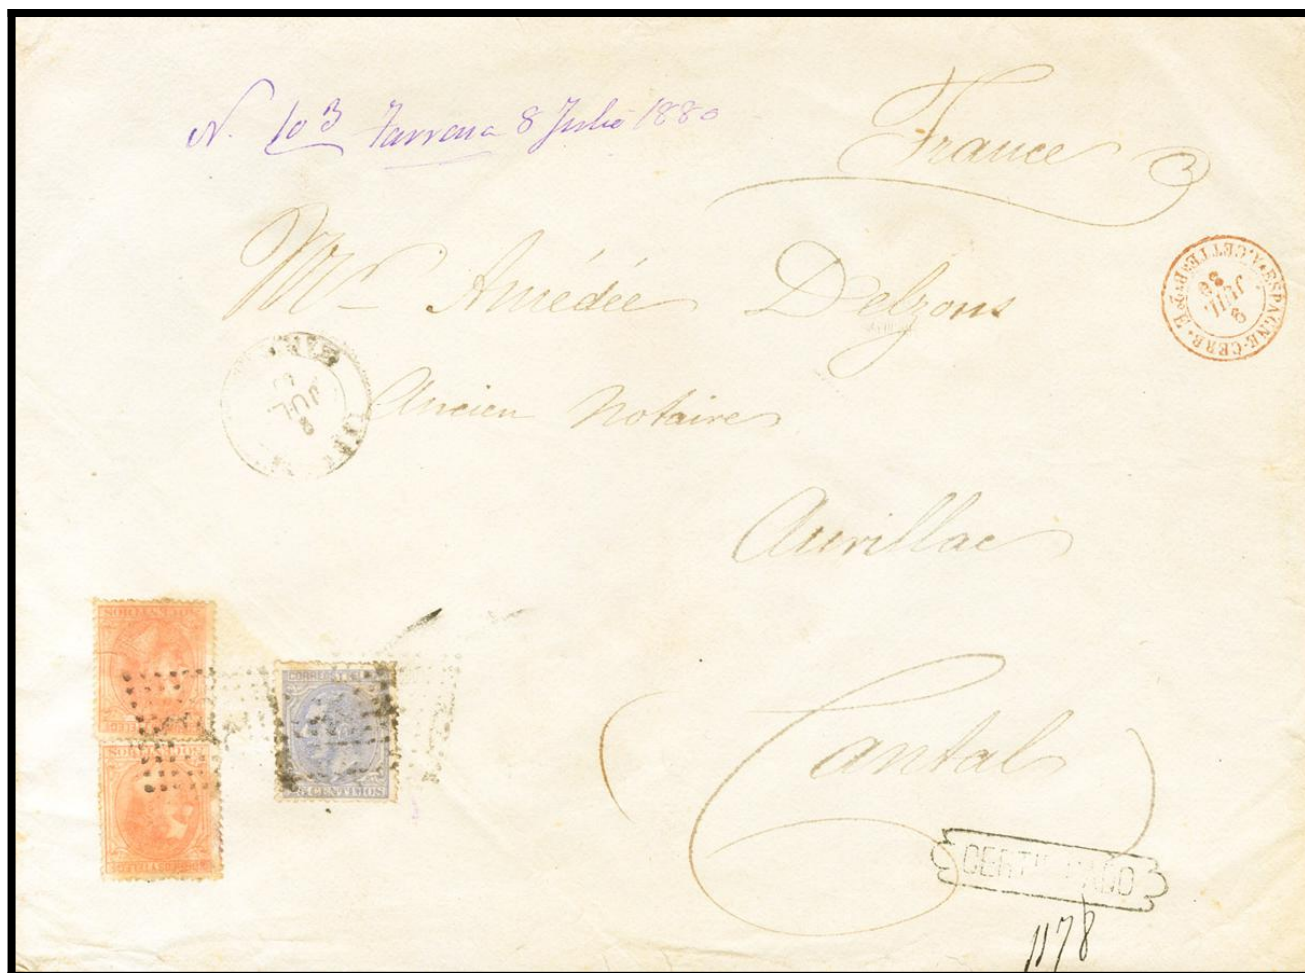 N. 103 Tarrasa 8 Julio 1880
France
Mr Amédée Delzons
Ancien Notaire
Aurillac
Cantal
ESPAGNE·CERB.
9
JUIL
80
8
JUL
CORREOS Y
25 CENTIMOS
50 CENTIMOS
50 CENTIMOS
CERTIFICADO
1178